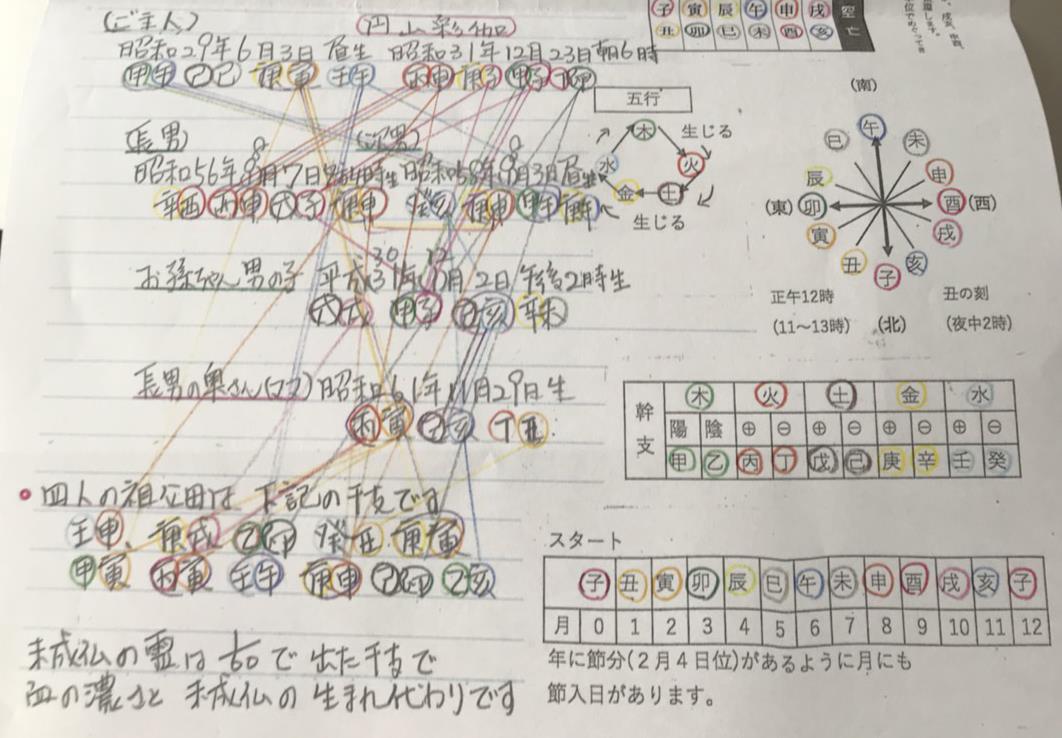 (ご主人)
昭和29年6月3日 昼生 昭和31年12月23日 朝6時
甲午 乙巳 庚寅 壬午 丙申 庚子 甲子
(長男)
(次男)
昭和56年8月7日 昭和58年8月3日 昼生
辛酉 丙申 戊子 庚申 癸亥 庚申 甲午 庚午
30 12
お孫ちゃん 男の子 平成31年 月2日 午後2時生
戊戌 甲子 乙亥 辛未
長男の奥さん(ママ) 昭和61年11月29日生
丙寅 己亥 丁丑
四人の祖父母は 下記の干支です
壬申、庚戌 乙卯 癸丑 庚寅
甲寅 丙寅 壬午 庚申 乙卯 乙亥
未成仏の霊は 60で出た干支で
血の濃さと 未成仏の 生まれ代わりです
子 寅 辰 午 申 戌
丑 卯 巳 未 酉 亥
空亡
五行
木 火 土 金 水
生じる
生じる
(南)
午
巳 未
辰 申
(東) 卯 酉 (西)
寅 戌
丑 亥
子
正午12時 丑の刻
(11〜13時) (北) (夜中2時)
幹支 木 火 土 金 水
陽 陰 ⊕ ⊖ ⊕ ⊖ ⊕ ⊖ ⊕ ⊖
甲 乙 丙 丁 戊 己 庚 辛 壬 癸
スタート
子 丑 寅 卯 辰 巳 午 未 申 酉 戌 亥 子
月 0 1 2 3 4 5 6 7 8 9 10 11 12
年に節分(2月4日位)があるように月にも
節入日があります。